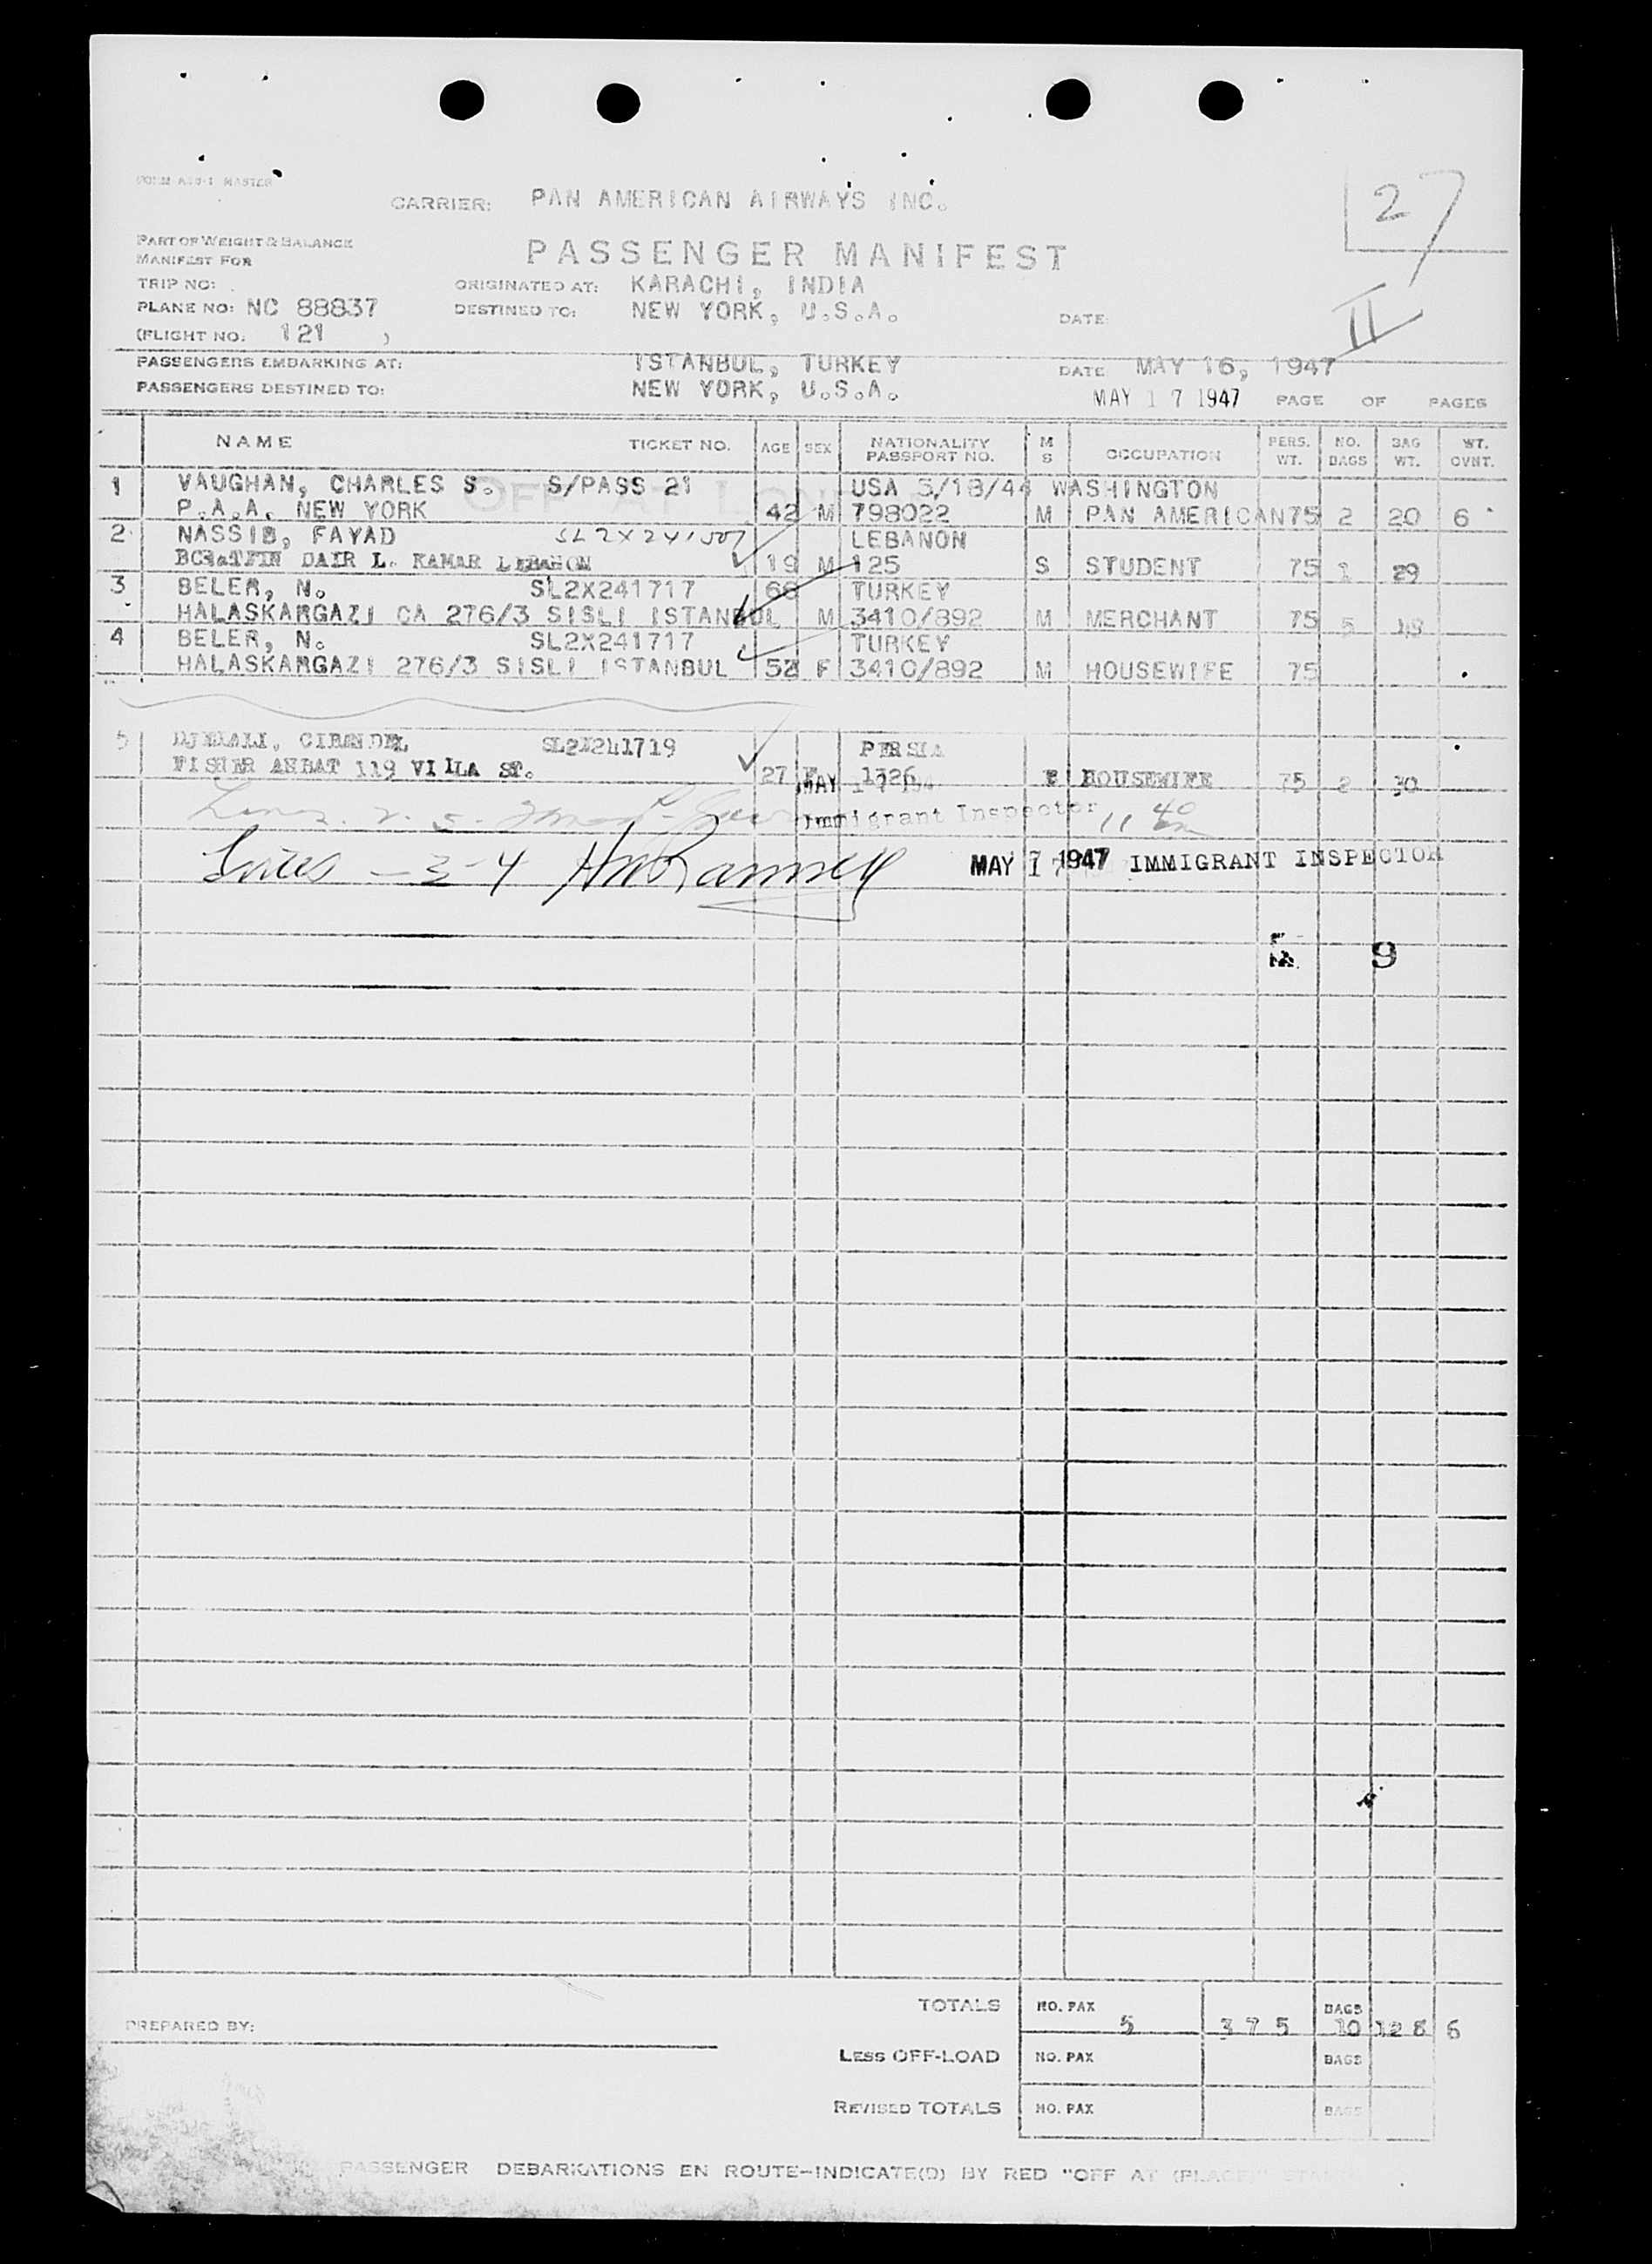 FORM A49-1 MASTER
CARRIER: PAN AMERICAN AIRWAYS INC.
27
PART OF WEIGHT & BALANCE
MANIFEST FOR
PASSENGER MANIFEST
TRIP NO: ORIGINATED AT: KARACHI, INDIA
PLANE NO: NC 88837 DESTINED TO: NEW YORK, U.S.A. DATE:
(FLIGHT NO: 121 )
II
PASSENGERS EMBARKING AT: ISTANBUL, TURKEY DATE MAY 16, 1947
PASSENGERS DESTINED TO: NEW YORK, U.S.A. MAY 17 1947 PAGE OF PAGES
NAME TICKET NO. AGE SEX NATIONALITY PASSPORT NO. M S OCCUPATION PERS. WT. NO. BAGS BAG WT. WT. OVNT.
1 VAUGHAN, CHARLES S. S/PASS 21 USA 5/18/44 WASHINGTON
OFF AT LON
P.A.A. NEW YORK 42 M 798022 M PAN AMERICAN 75 2 20 6
2 NASSIB, FAYAD SL2X241507 LEBANON
DAIR L. KAMAR LEBANON 19 M 125 S STUDENT 75 1 29
3 BELER, N. SL2X241717 66 TURKEY
HALASKARGAZI CA 276/3 SISLI ISTANBUL M 3410/892 M MERCHANT 75 5
4 BELER, N. SL2X241717 TURKEY
HALASKARGAZI 276/3 SISLI ISTANBUL 52 F 3410/892 M HOUSEWIFE 75
5 DJEMALI, SL2X241719 PERSIA
FISHER 119 VILLA ST. 27 F 1326 HOUSEWIFE 75 2 30
MAY 17 194
Lines 2. 5. Immigrant Inspector 11 40
Lines - 3-4 MAY 17 1947 IMMIGRANT INSPECTOR
9
TOTALS NO. PAX 5 375 BAGS 10 128 6
PREPARED BY:
LESS OFF-LOAD NO. PAX BAGS
REVISED TOTALS NO. PAX BAGS
PASSENGER DEBARKATIONS EN ROUTE-INDICATE(D) BY RED "OFF AT (PLACE)" STAMP